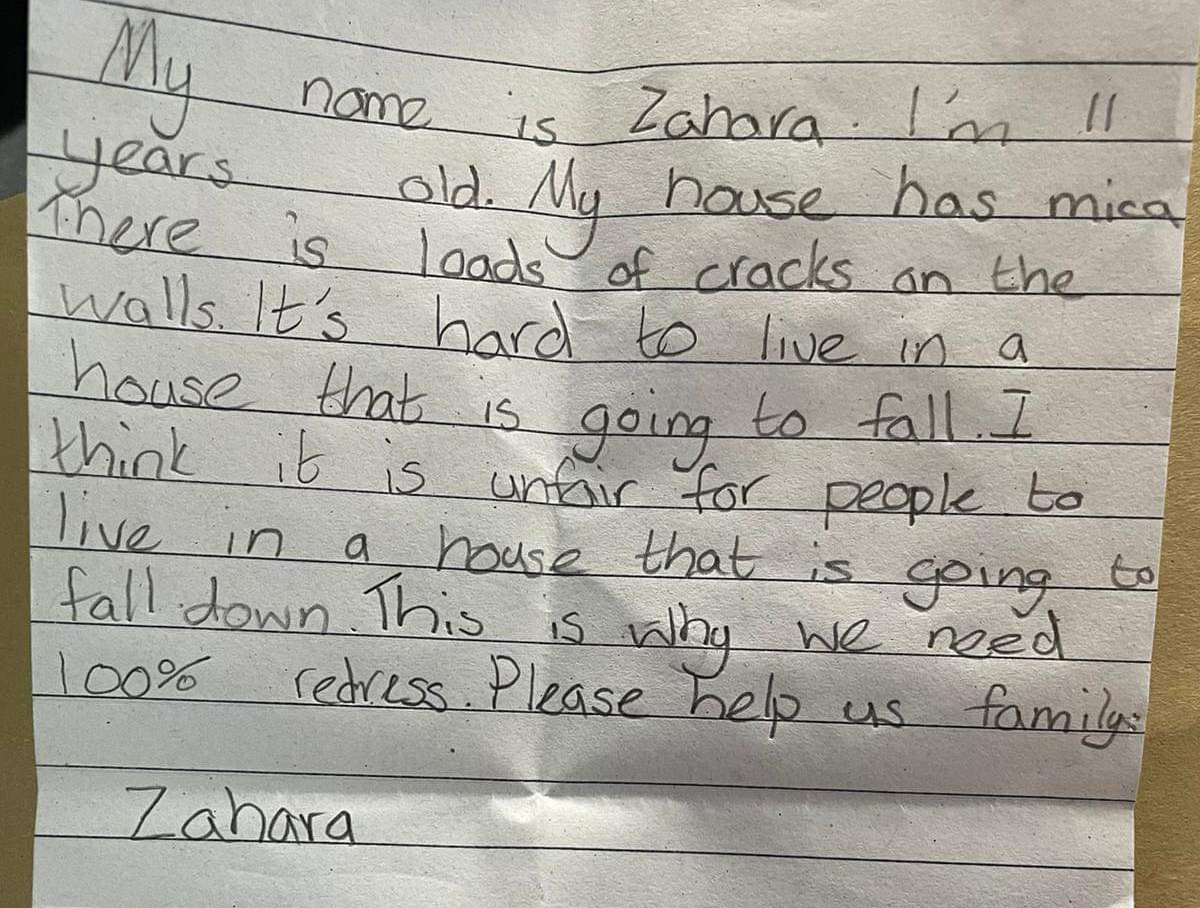 My name is Zahara. I'm 11
years old. My house has mica
There is loads of cracks on the
walls. It's hard to live in a
house that is going to fall. I
think it is unfair for people to
live in a house that is going to
fall down. This is why we need
100% redress. Please help us family:
Zahara